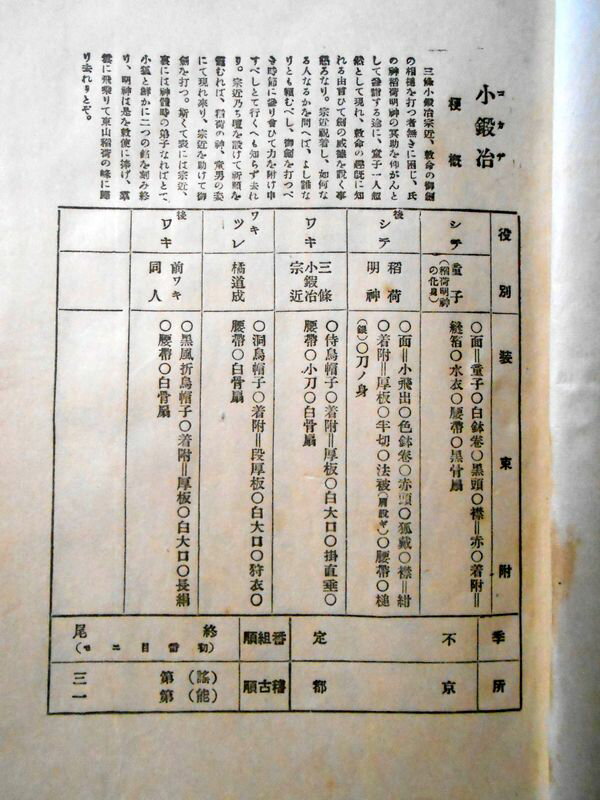 小鍛冶
コカヂ
梗概
三條小鍛冶宗近、敕命の御劍
の相槌を打つ者無きに困じ、氏
の神稻荷明神の冥助を仰がんと
して參詣する途に、童子一人超
然として現れ、敕命の趣旣に知
れる由言ひて劍の威德を說く事
懇ろなり。宗近祝着し、如何な
る人なるかを問へば、よし誰な
りとも賴むべし、御劍を打つべ
き時節に參り會ひて力を附け申
すべしとて行くへも知らず去れ
り。宗近乃ち壇を設けて祈願を
籠むれば、稻荷の神、童男の姿
にて現れ來り、宗近を助けて御
劍を打つ。斯くて表には宗近、
裏には神體時の弟子なればとて、
小狐と鮮かに二つの銘を刻み終
り、明神は是を敕使に捧げ、叢
雲に飛乘りて東山稻荷の峰に歸
り去れりとぞ。
役別
裝束附
シテ
童子
(稻荷明神の化身)
○面=童子○白鉢卷○黑頭○襟=赤○着附=
縫箔○水衣○腰帶○黑骨扇
後シテ
稻荷明神
○面=小飛出○色鉢卷○赤頭○狐戴○襟=紺
○着附=厚板○半切○法被(肩脫ギ)○腰帶○槌
(銀)○刀ノ身
ワキ
三條小鍛冶宗近
○侍烏帽子○着附=厚板○白大口○掛直垂○
腰帶○小刀○白骨扇
ワキツレ
橘道成
○洞烏帽子○着附=段厚板○白大口○狩衣○
腰帶○白骨扇
後ワキ
前ワキ同人
○黑風折烏帽子○着附=厚板○白大口○長絹
○腰帶○白骨扇
季
不定
番組順
終尾
(初番目ニモ)
所
京都
稽古順
(謠)第三
(能)第一